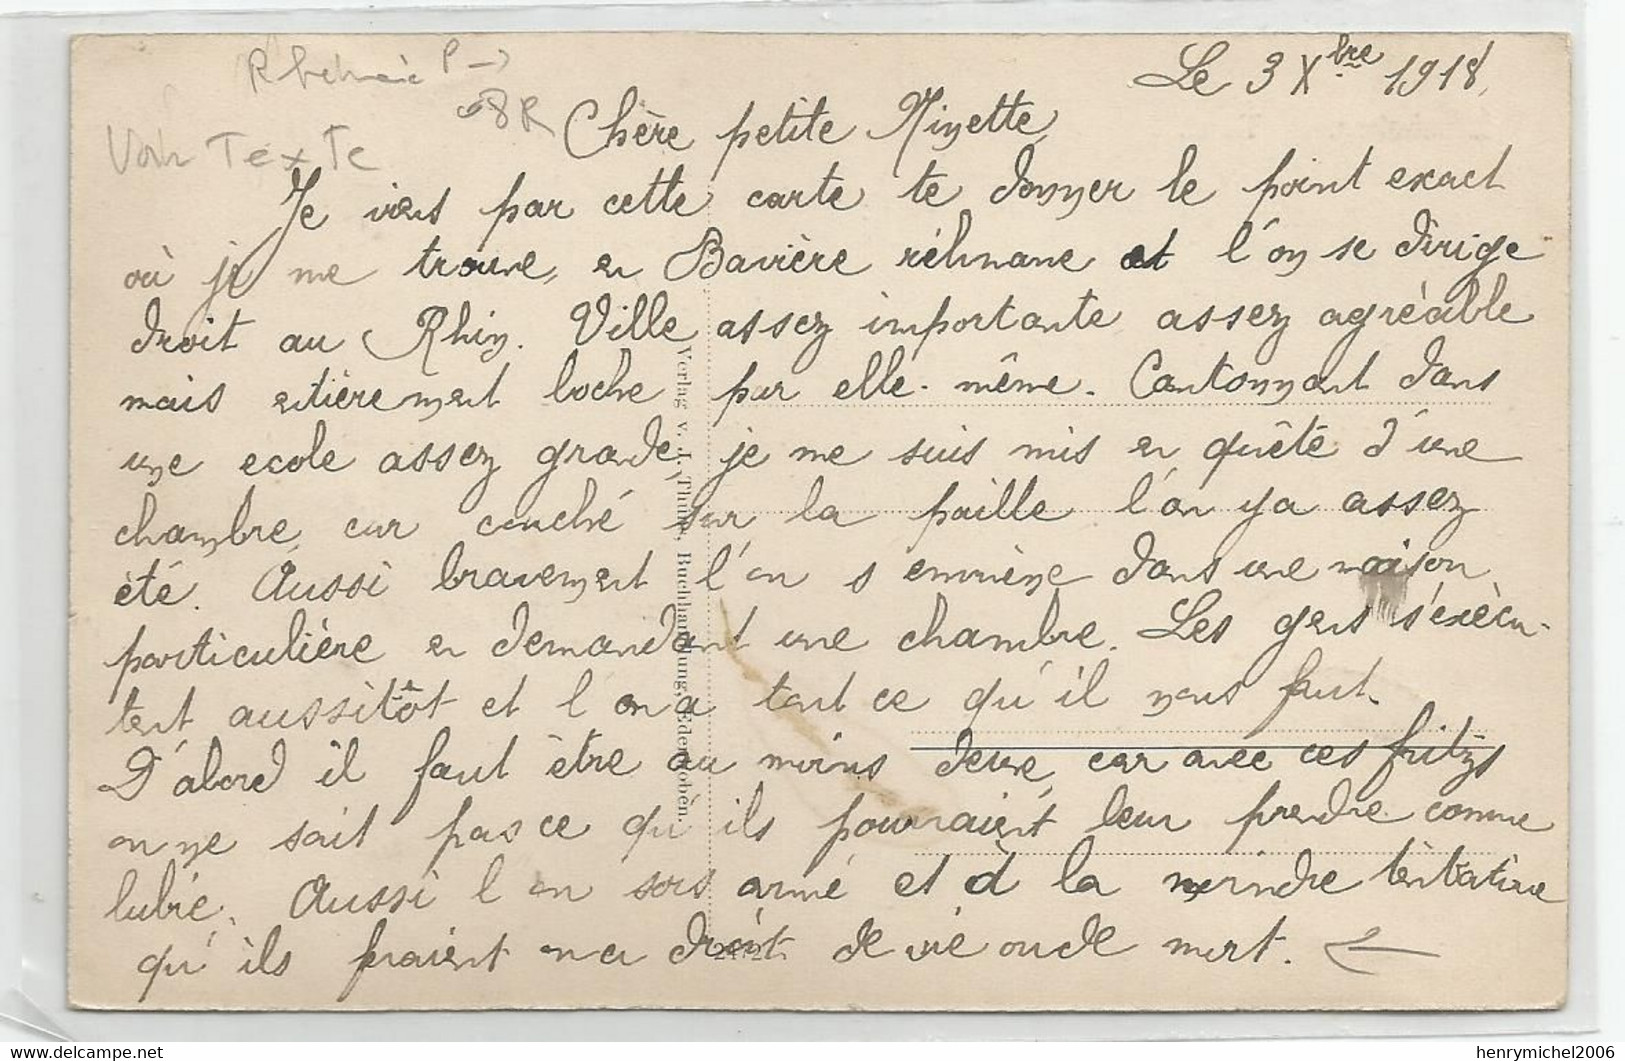 Voir Texte
68 R
Le 3 Xbre 1918.
Chère petite Ninette,
Je viens par cette carte te donner le point exact
où je me trouve, en Bavière réhnane et l'on se dirige
droit au Rhin. Ville assez importante assez agréable
mais entièrement boche par elle-même. Cantonnant dans
une ecole assez grande, je me suis mis en quêté d'une
chambre, car couché sur la paille l'on ya assez
été. Aussi bravement l'on s'emmène dans une maison
particulière en demandant une chambre. Les gens s'exécu-
tent aussitôt et l'on a tout ce qu'il nous faut.
D'abord il faut être au moins deux, car avec ces fritzs
on ne sait pas ce qu'ils pourraient leur prendre comme
lubie. Aussi l'on sors armé et à la moindre tentative
qu'ils fraient on a droit de vie ou de mort.
Verlag v. J. Thiele, Buchhandlung, Edenkoben.
henrymichel2006